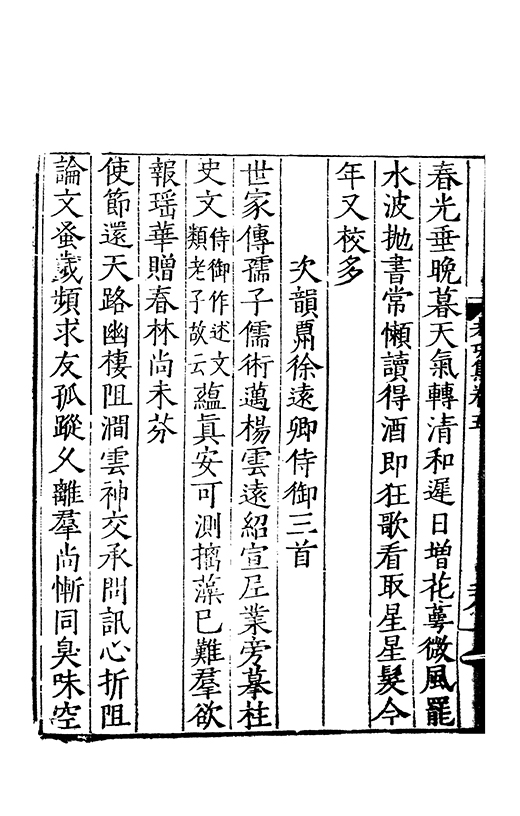 春光垂晚暮天氣轉清和遲日增花蕚微風罷
水波抛書常懶讀得酒即狂歌看取星星髮今
年又校多
次韻鬻徐遠卿侍御三首
世家傳孺子儒術邁楊雲遠紹宣尼業旁摹柱
史文侍御作述文類老子故云蘊眞安可測摛藻已難羣欲
報瑶華贈春林尚未芬
使節還天路幽棲阻澗雲神交承問訊心折阻
論文蚤歲頻求友孤蹤乆離羣尚慚同臭味空